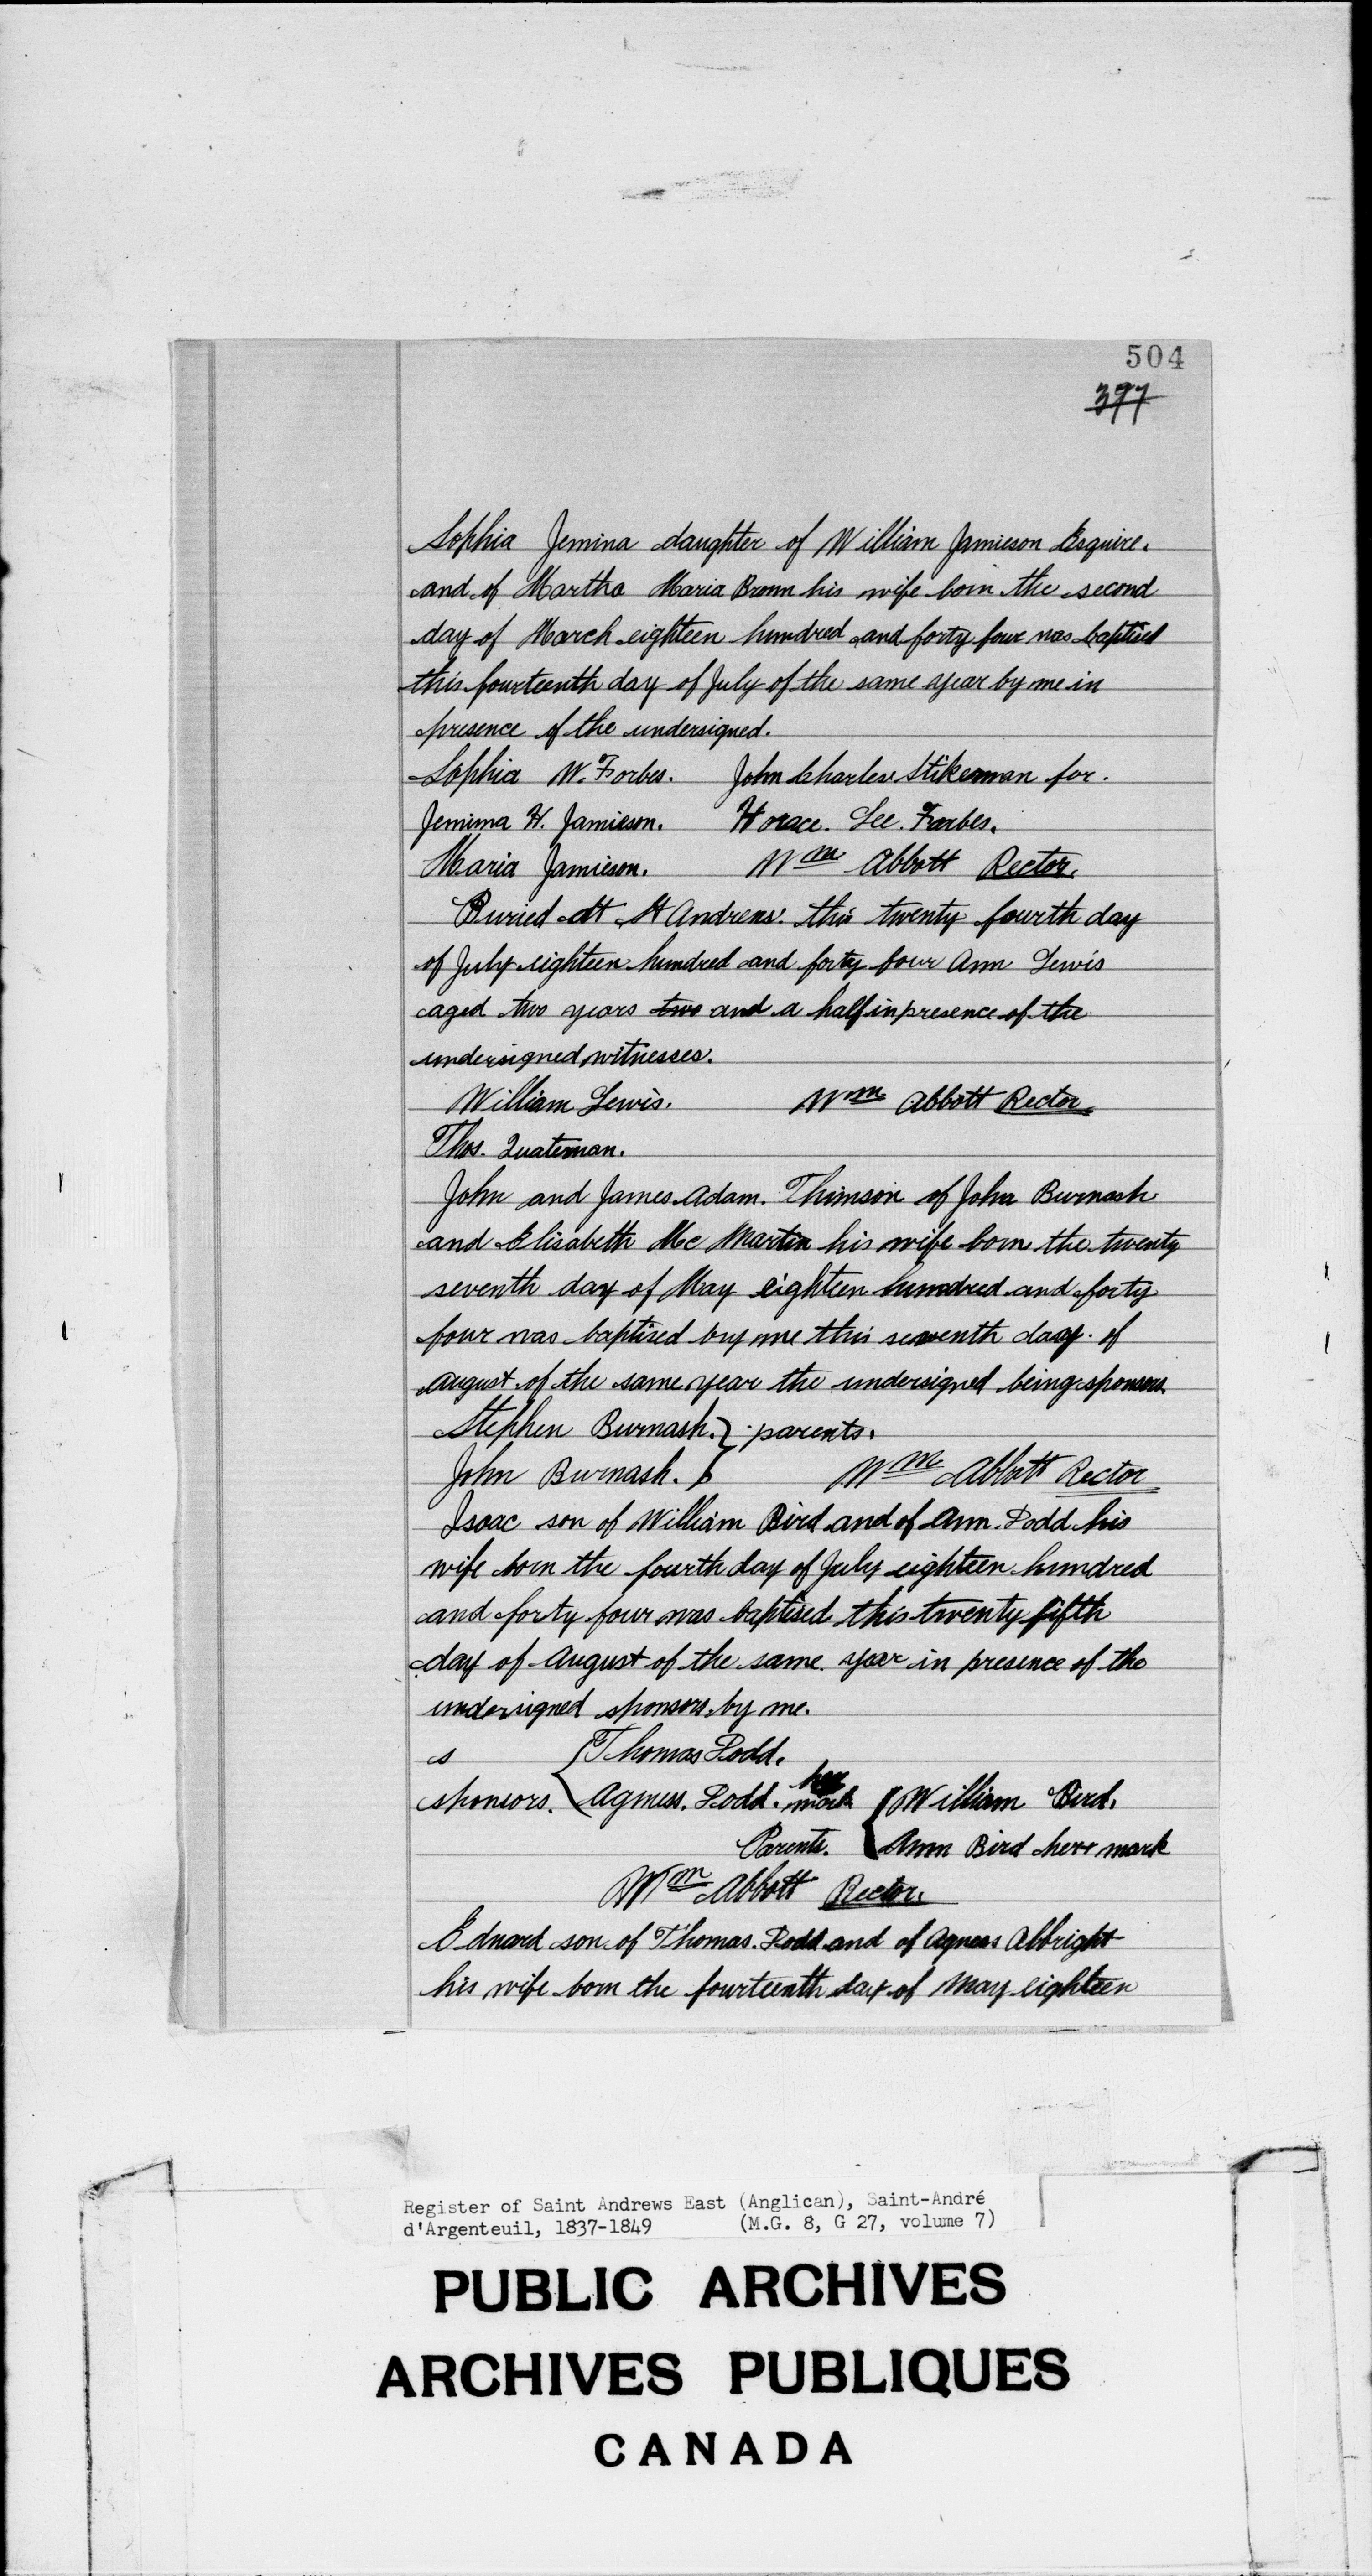 504
397
Sophia Jemina daughter of William Jamieson Esquire.
and of Martha Maria Brown his wife born the second
day of March eighteen hundred and forty four was baptised
this fourteenth day of July of the same year by me in
presence of the undersigned.
Sophia W. Forbes. John Charles Stikeman for.
Jemima H. Jamieson. Horace. Lee. Forbes.
Maria Jamieson. Wm Abbott Rector.
Buried at St Andrews. this twenty fourth day
of July eighteen hundred and forty four Ann Lewis
aged two years two and a half in presence of the
undersigned witnesses.
William Lewis. Wm Abbott Rector
Thos. Quaterman.
John and James Adam. Thimson of John Burnash
and Elisabeth Mc Martin his wife born the twenty
seventh day of May eighteen hundred and forty
four was baptised by me this seventh day of
August of the same year the undersigned being sponsors
Stephen Burnash. } parents.
John Burnash. } Wm Abbott Rector
Isaac son of William Bird and of Ann. Dodd his
wife born the fourth day of July eighteen hundred
and forty four was baptised this twenty fifth
day of August of the same year in presence of the
undersigned sponsors by me.
s { Thomas Dodd.
sponsors. { Agness. Dodd. her mark { William Bird.
Parents. { Ann Bird her x mark
Wm Abbott Rector.
Edward son of Thomas. Dodd and of Agness Albright
his wife born the fourteenth day of May eighteen
Register of Saint Andrews East (Anglican), Saint-André
d'Argenteuil, 1837-1849 (M.G. 8, G 27, volume 7)
PUBLIC ARCHIVES
ARCHIVES PUBLIQUES
CANADA